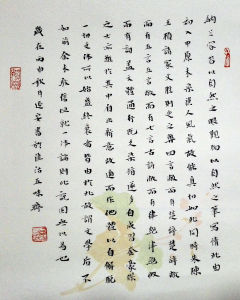 納蘭容若以自然之眼觀物以自然之筆寫情此由
初入中原未染漢人風氣故能真切如此同時朱陳
王顧諸家文勝則史之弊四言敝而有楚辭楚辭敝
而有五言五言敝而有七言古詩敝而有律絕律絕敝
而有詞蓋文體通行既久染指遂多自成習套豪傑
之士亦難於其中自出新意故遁而作他體以自解脫
一切文體所以始盛終衰者皆由於此故謂文學後不
如前余未敢信但就一體論則此說固無以易也
歲在丙申秋月書於五味齋